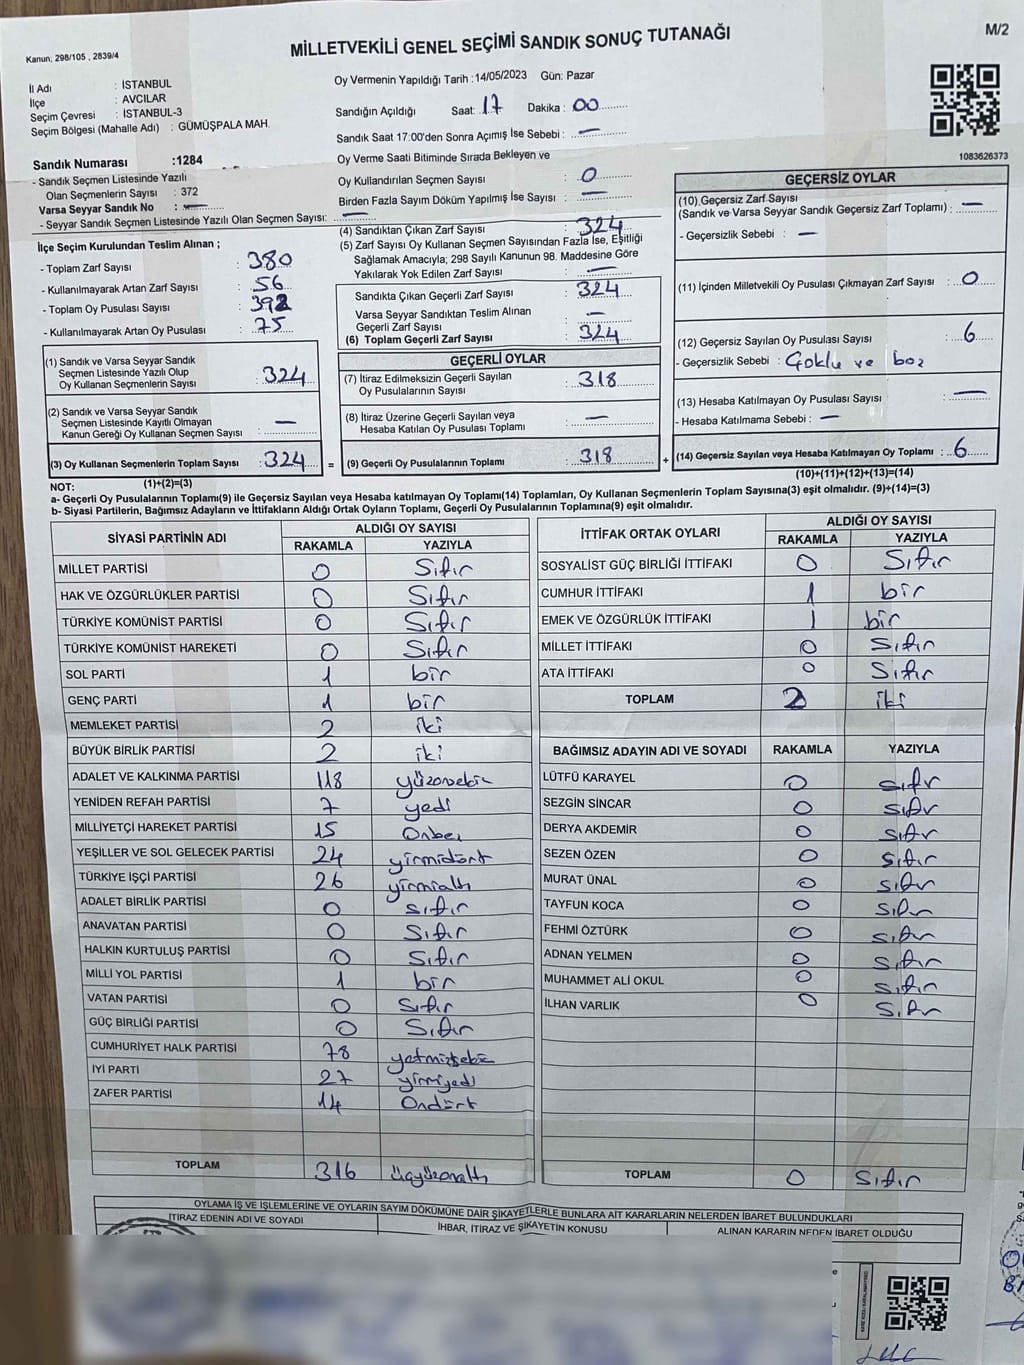 M/2
Kanun; 298/105 , 2839/4
MİLLETVEKİLİ GENEL SEÇİMİ SANDIK SONUÇ TUTANAĞI
İl Adı : İSTANBUL
İlçe : AVCILAR
Seçim Çevresi : İSTANBUL-3
Seçim Bölgesi (Mahalle Adı) : GÜMÜŞPALA MAH.
Oy Vermenin Yapıldığı Tarih :14/05/2023 Gün: Pazar
Sandığın Açıldığı Saat: 17 Dakika : 00
Sandık Saat 17:00'den Sonra Açımış İse Sebebi : —
Oy Verme Saati Bitiminde Sırada Bekleyen ve
Oy Kullandırılan Seçmen Sayısı : 0
Birden Fazla Sayım Döküm Yapılmış İse Sayısı : —
1083626373
Sandık Numarası :1284
- Sandık Seçmen Listesinde Yazılı
Olan Seçmenlerin Sayısı : 372
Varsa Seyyar Sandık No : —
- Seyyar Sandık Seçmen Listesinde Yazılı Olan Seçmen Sayısı: —
İlçe Seçim Kurulundan Teslim Alınan ;
- Toplam Zarf Sayısı : 380
- Kullanılmayarak Artan Zarf Sayısı : 56
- Toplam Oy Pusulası Sayısı : 392
- Kullanılmayarak Artan Oy Pusulası : 75
(1) Sandık ve Varsa Seyyar Sandık
Seçmen Listesinde Yazılı Olup
Oy Kullanan Seçmenlerin Sayısı : 324
(2) Sandık ve Varsa Seyyar Sandık
Seçmen Listesinde Kayıtlı Olmayan
Kanun Gereği Oy Kullanan Seçmen Sayısı : —
(3) Oy Kullanan Seçmenlerin Toplam Sayısı : 324
(1)+(2)=(3)
(4) Sandıktan Çıkan Zarf Sayısı : 324
(5) Zarf Sayısı Oy Kullanan Seçmen Sayısından Fazla İse, Eşitliği
Sağlamak Amacıyla; 298 Sayılı Kanunun 98. Maddesine Göre
Yakılarak Yok Edilen Zarf Sayısı : —
Sandıkta Çıkan Geçerli Zarf Sayısı : 324
Varsa Seyyar Sandıktan Teslim Alınan
Geçerli Zarf Sayısı : —
(6) Toplam Geçerli Zarf Sayısı : 324
GEÇERLİ OYLAR
(7) İtiraz Edilmeksizin Geçerli Sayılan
Oy Pusulalarının Sayısı : 318
(8) İtiraz Üzerine Geçerli Sayılan veya
Hesaba Katılan Oy Pusulası Toplamı : —
= (9) Geçerli Oy Pusulalarının Toplamı : 318 +
GEÇERSİZ OYLAR
(10) Geçersiz Zarf Sayısı
(Sandık ve Varsa Seyyar Sandık Geçersiz Zarf Toplamı) : —
- Geçersizlik Sebebi : —
(11) İçinden Milletvekili Oy Pusulası Çıkmayan Zarf Sayısı : 0
(12) Geçersiz Sayılan Oy Pusulası Sayısı : 6
- Geçersizlik Sebebi : Çoklu ve boş
(13) Hesaba Katılmayan Oy Pusulası Sayısı : —
- Hesaba Katılmama Sebebi : —
(14) Geçersiz Sayılan veya Hesaba Katılmayan Oy Toplamı : 6
(10)+(11)+(12)+(13)=(14)
NOT:
a- Geçerli Oy Pusulalarının Toplamı(9) ile Geçersiz Sayılan veya Hesaba katılmayan Oy Toplamı(14) Toplamları, Oy Kullanan Seçmenlerin Toplam Sayısına(3) eşit olmalıdır. (9)+(14)=(3)
b- Siyasi Partilerin, Bağımsız Adayların ve İttifakların Aldığı Ortak Oyların Toplamı, Geçerli Oy Pusulalarının Toplamına(9) eşit olmalıdır.
SİYASİ PARTİNİN ADI ALDIĞI OY SAYISI
RAKAMLA YAZIYLA
MİLLET PARTİSİ 0 Sıfır
HAK VE ÖZGÜRLÜKLER PARTİSİ 0 Sıfır
TÜRKİYE KOMÜNİST PARTİSİ 0 Sıfır
TÜRKİYE KOMÜNİST HAREKETİ 0 Sıfır
SOL PARTİ 1 bir
GENÇ PARTİ 1 bir
MEMLEKET PARTİSİ 2 iki
BÜYÜK BİRLİK PARTİSİ 2 iki
ADALET VE KALKINMA PARTİSİ 118
YENİDEN REFAH PARTİSİ 7 yedi
MİLLİYETÇİ HAREKET PARTİSİ 15 Onbeş
YEŞİLLER VE SOL GELECEK PARTİSİ 24 yirmidört
TÜRKİYE İŞÇİ PARTİSİ 26 yirmialtı
ADALET BİRLİK PARTİSİ 0 sıfır
ANAVATAN PARTİSİ 0 Sıfır
HALKIN KURTULUŞ PARTİSİ 0 Sıfır
MİLLİ YOL PARTİSİ 1 bir
VATAN PARTİSİ 0 Sıfır
GÜÇ BİRLİĞİ PARTİSİ 0 Sıfır
CUMHURİYET HALK PARTİSİ 78
İYİ PARTİ 27 yirmiyedi
ZAFER PARTİSİ 14 Ondört
TOPLAM 316 üçyüzonaltı
İTTİFAK ORTAK OYLARI ALDIĞI OY SAYISI
RAKAMLA YAZIYLA
SOSYALİST GÜÇ BİRLİĞİ İTTİFAKI 0 Sıfır
CUMHUR İTTİFAKI 1 bir
EMEK VE ÖZGÜRLÜK İTTİFAKI 1 bir
MİLLET İTTİFAKI 0 Sıfır
ATA İTTİFAKI 0 Sıfır
TOPLAM 2 iki
BAĞIMSIZ ADAYIN ADI VE SOYADI RAKAMLA YAZIYLA
LÜTFÜ KARAYEL 0 sıfır
SEZGİN SİNCAR 0 sıfır
DERYA AKDEMİR 0 sıfır
SEZEN ÖZEN 0 sıfır
MURAT ÜNAL 0 sıfır
TAYFUN KOCA 0 sıfır
FEHMİ ÖZTÜRK 0 sıfır
ADNAN YELMEN 0 sıfır
MUHAMMET ALİ OKUL 0 sıfır
İLHAN VARLIK 0 sıfır
TOPLAM 0 sıfır
OYLAMA İŞ VE İŞLEMLERİNE VE OYLARIN SAYIM DÖKÜMÜNE DAİR ŞİKAYETLERLE BUNLARA AİT KARARLARIN NELERDEN İBARET BULUNDUKLARI
İTİRAZ EDENİN ADI VE SOYADI İHBAR, İTİRAZ VE ŞİKAYETİN KONUSU ALINAN KARARIN NEDEN İBARET OLDUĞU